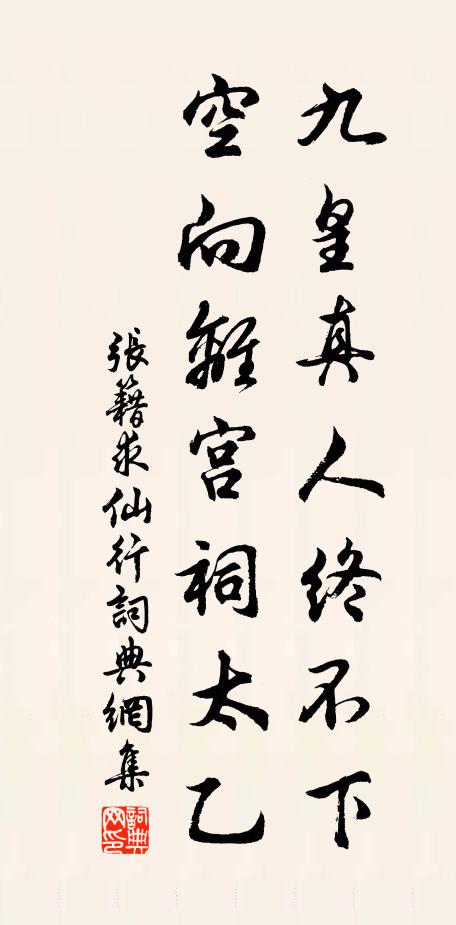 九皇真人终不下
空向離宫祠太乙
張籍求仙行詞典網集
詞典
网印